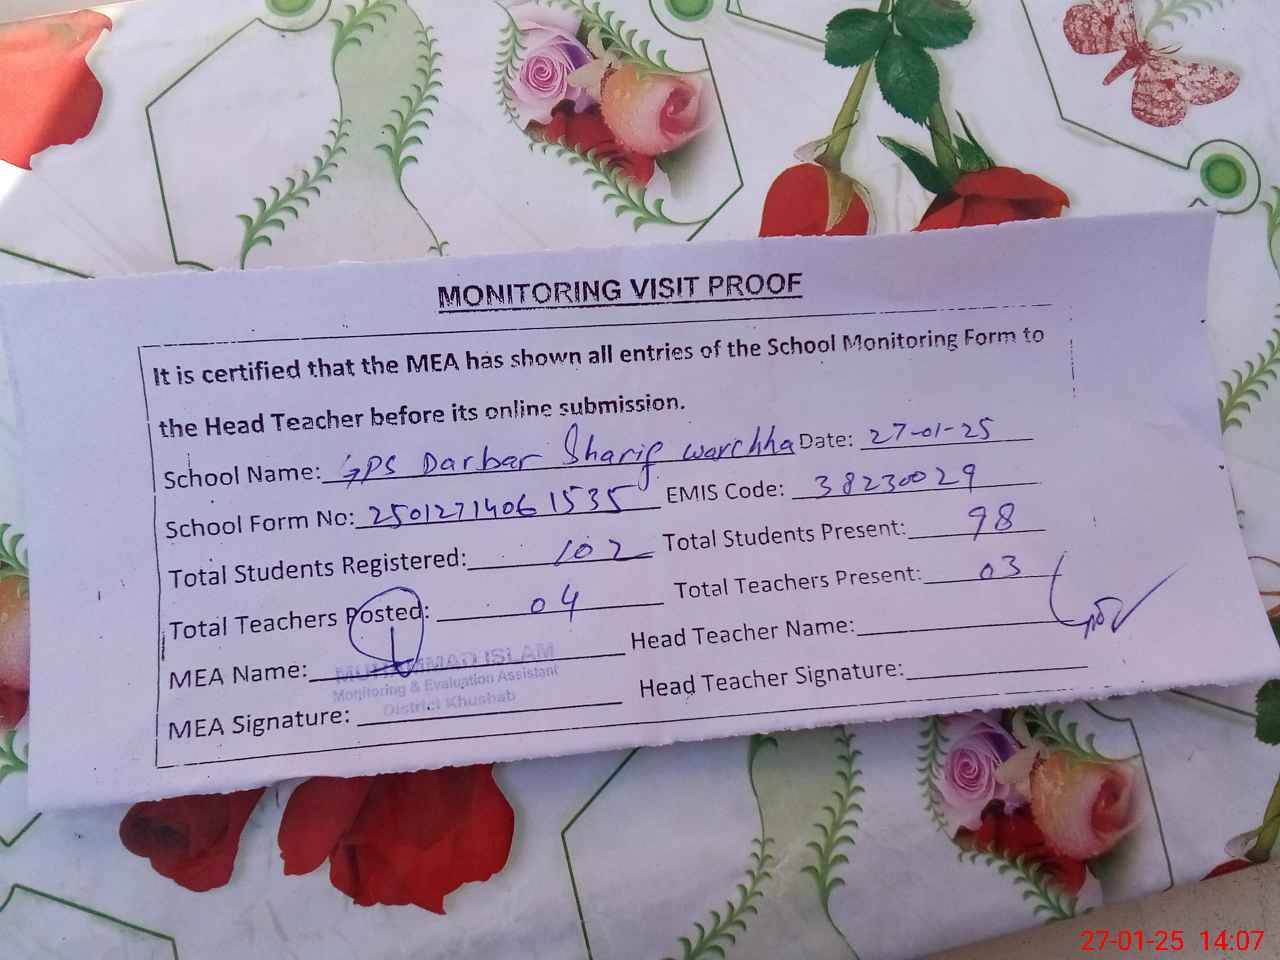 MONITORING VISIT PROOF
It is certified that the MEA has shown all entries of the School Monitoring Form to
the Head Teacher before its online submission.
School Name: GPS Darbar Sharif warchha Date: 27-01-25
School Form No: 2501271406 1535 EMIS Code: 38230029
Total Students Registered: 102 Total Students Present: 98
Total Teachers Posted: 04 Total Teachers Present: 03
MEA Name: MUHAMMAD ISLAM Head Teacher Name:
Monitoring & Evaluation Assistant
District Khushab
MEA Signature: Head Teacher Signature:
27-01-25 14:07